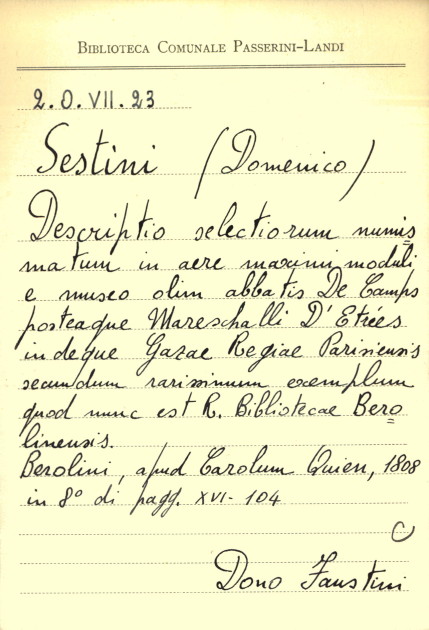 BIBLIOTECA COMUNALE PASSERINI-LANDI
2.O.VII.23
Sestini (Domenico)
Descriptio selectiorum numis=
matum in aere maximi moduli
e museo olim abbatis De Camps
posteaque Mareschalli D'Etrées
indeque Gazae Regiae Parisiensis
secundum rarissimum exemplum
quod nunc est R. Bibliotecae Bero=
linensis.
Berolini, apud Carolum Quien, 1808
in 8° di pagg. XVI-104
C
Dono Faustini